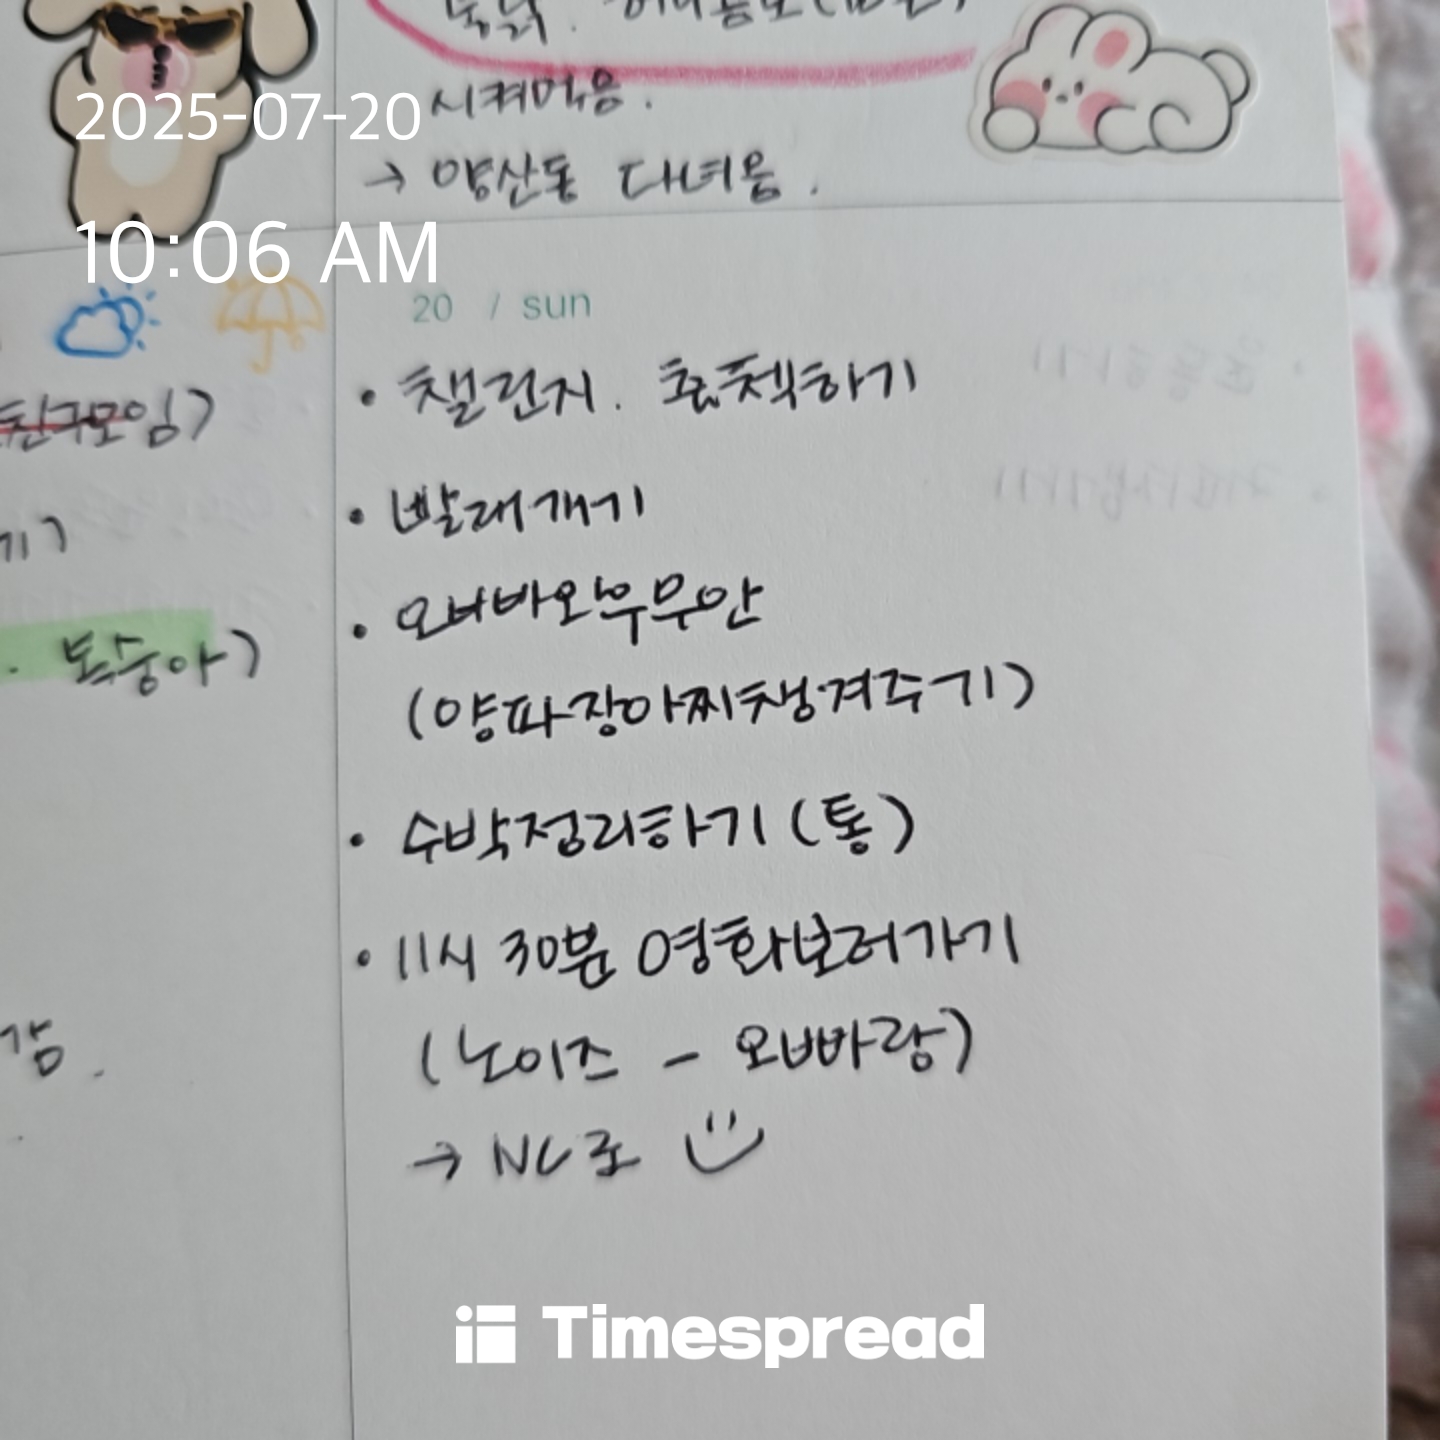 시켜먹음.
2025-07-20
→ 양산동 다녀옴.
10:06 AM
20 / sun
• 챌린지. 출첵하기
친구모임)
• 빨래개기
기)
• 오빠와우무안
. 복숭아)
(양파장아찌챙겨주기)
• 수박정리하기 (통)
• 11시 30분 영화보러가기
감.
(노이즈 - 오빠랑)
→ NC로
Timespread